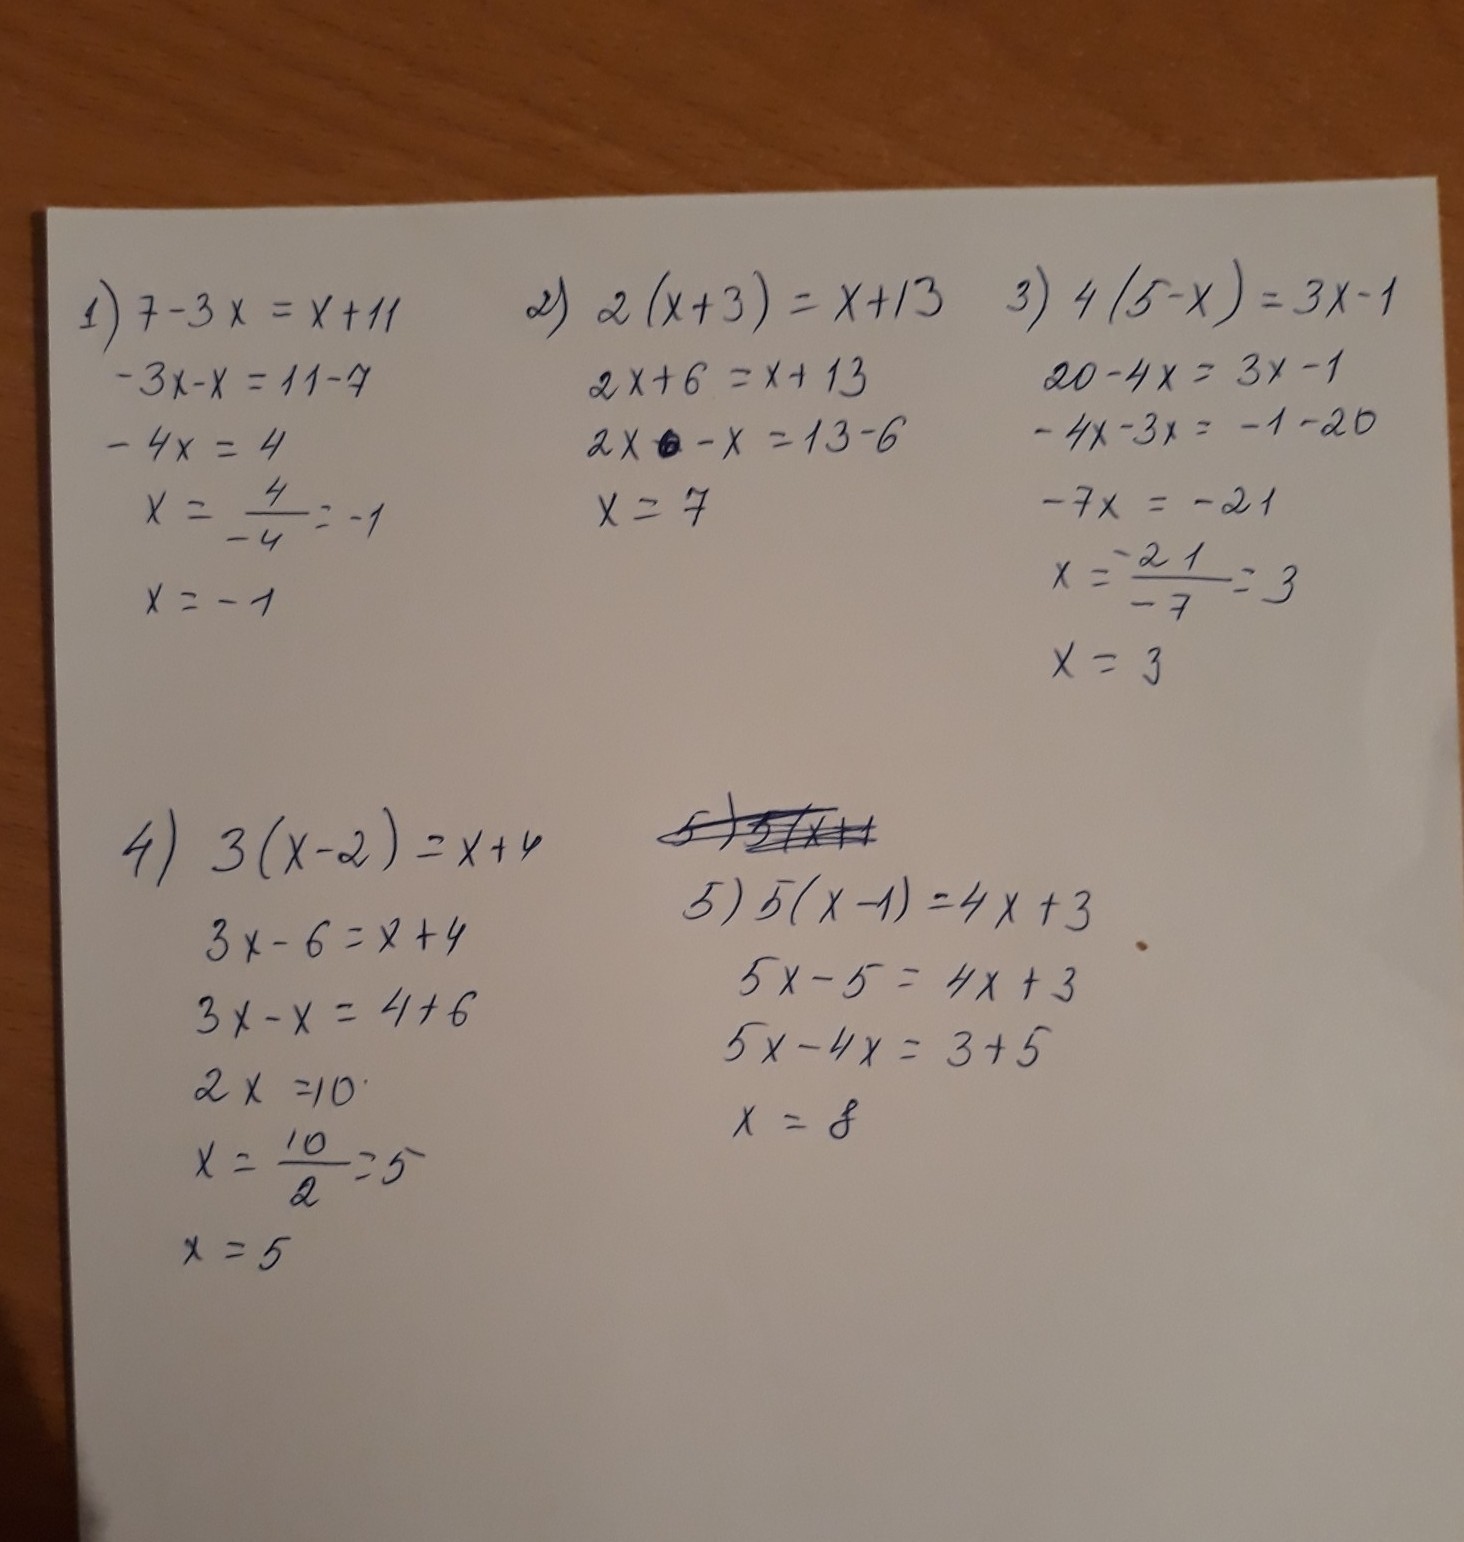 1) 7-3x = x+11
-3x-x = 11-7
-4x = 4
x = 4/-4 = -1
x = -1
2) 2(x+3) = x+13
2x+6 = x+13
2x -x = 13-6
x = 7
3) 4(5-x) = 3x-1
20-4x = 3x-1
-4x-3x = -1-20
-7x = -21
x = -21/-7 = 3
x = 3
4) 3(x-2) = x+4
3x-6 = x+4
3x-x = 4+6
2x = 10
x = 10/2 = 5
x = 5
5) 5(x+1
5) 5(x-1) = 4x+3
5x-5 = 4x+3
5x-4x = 3+5
x = 8